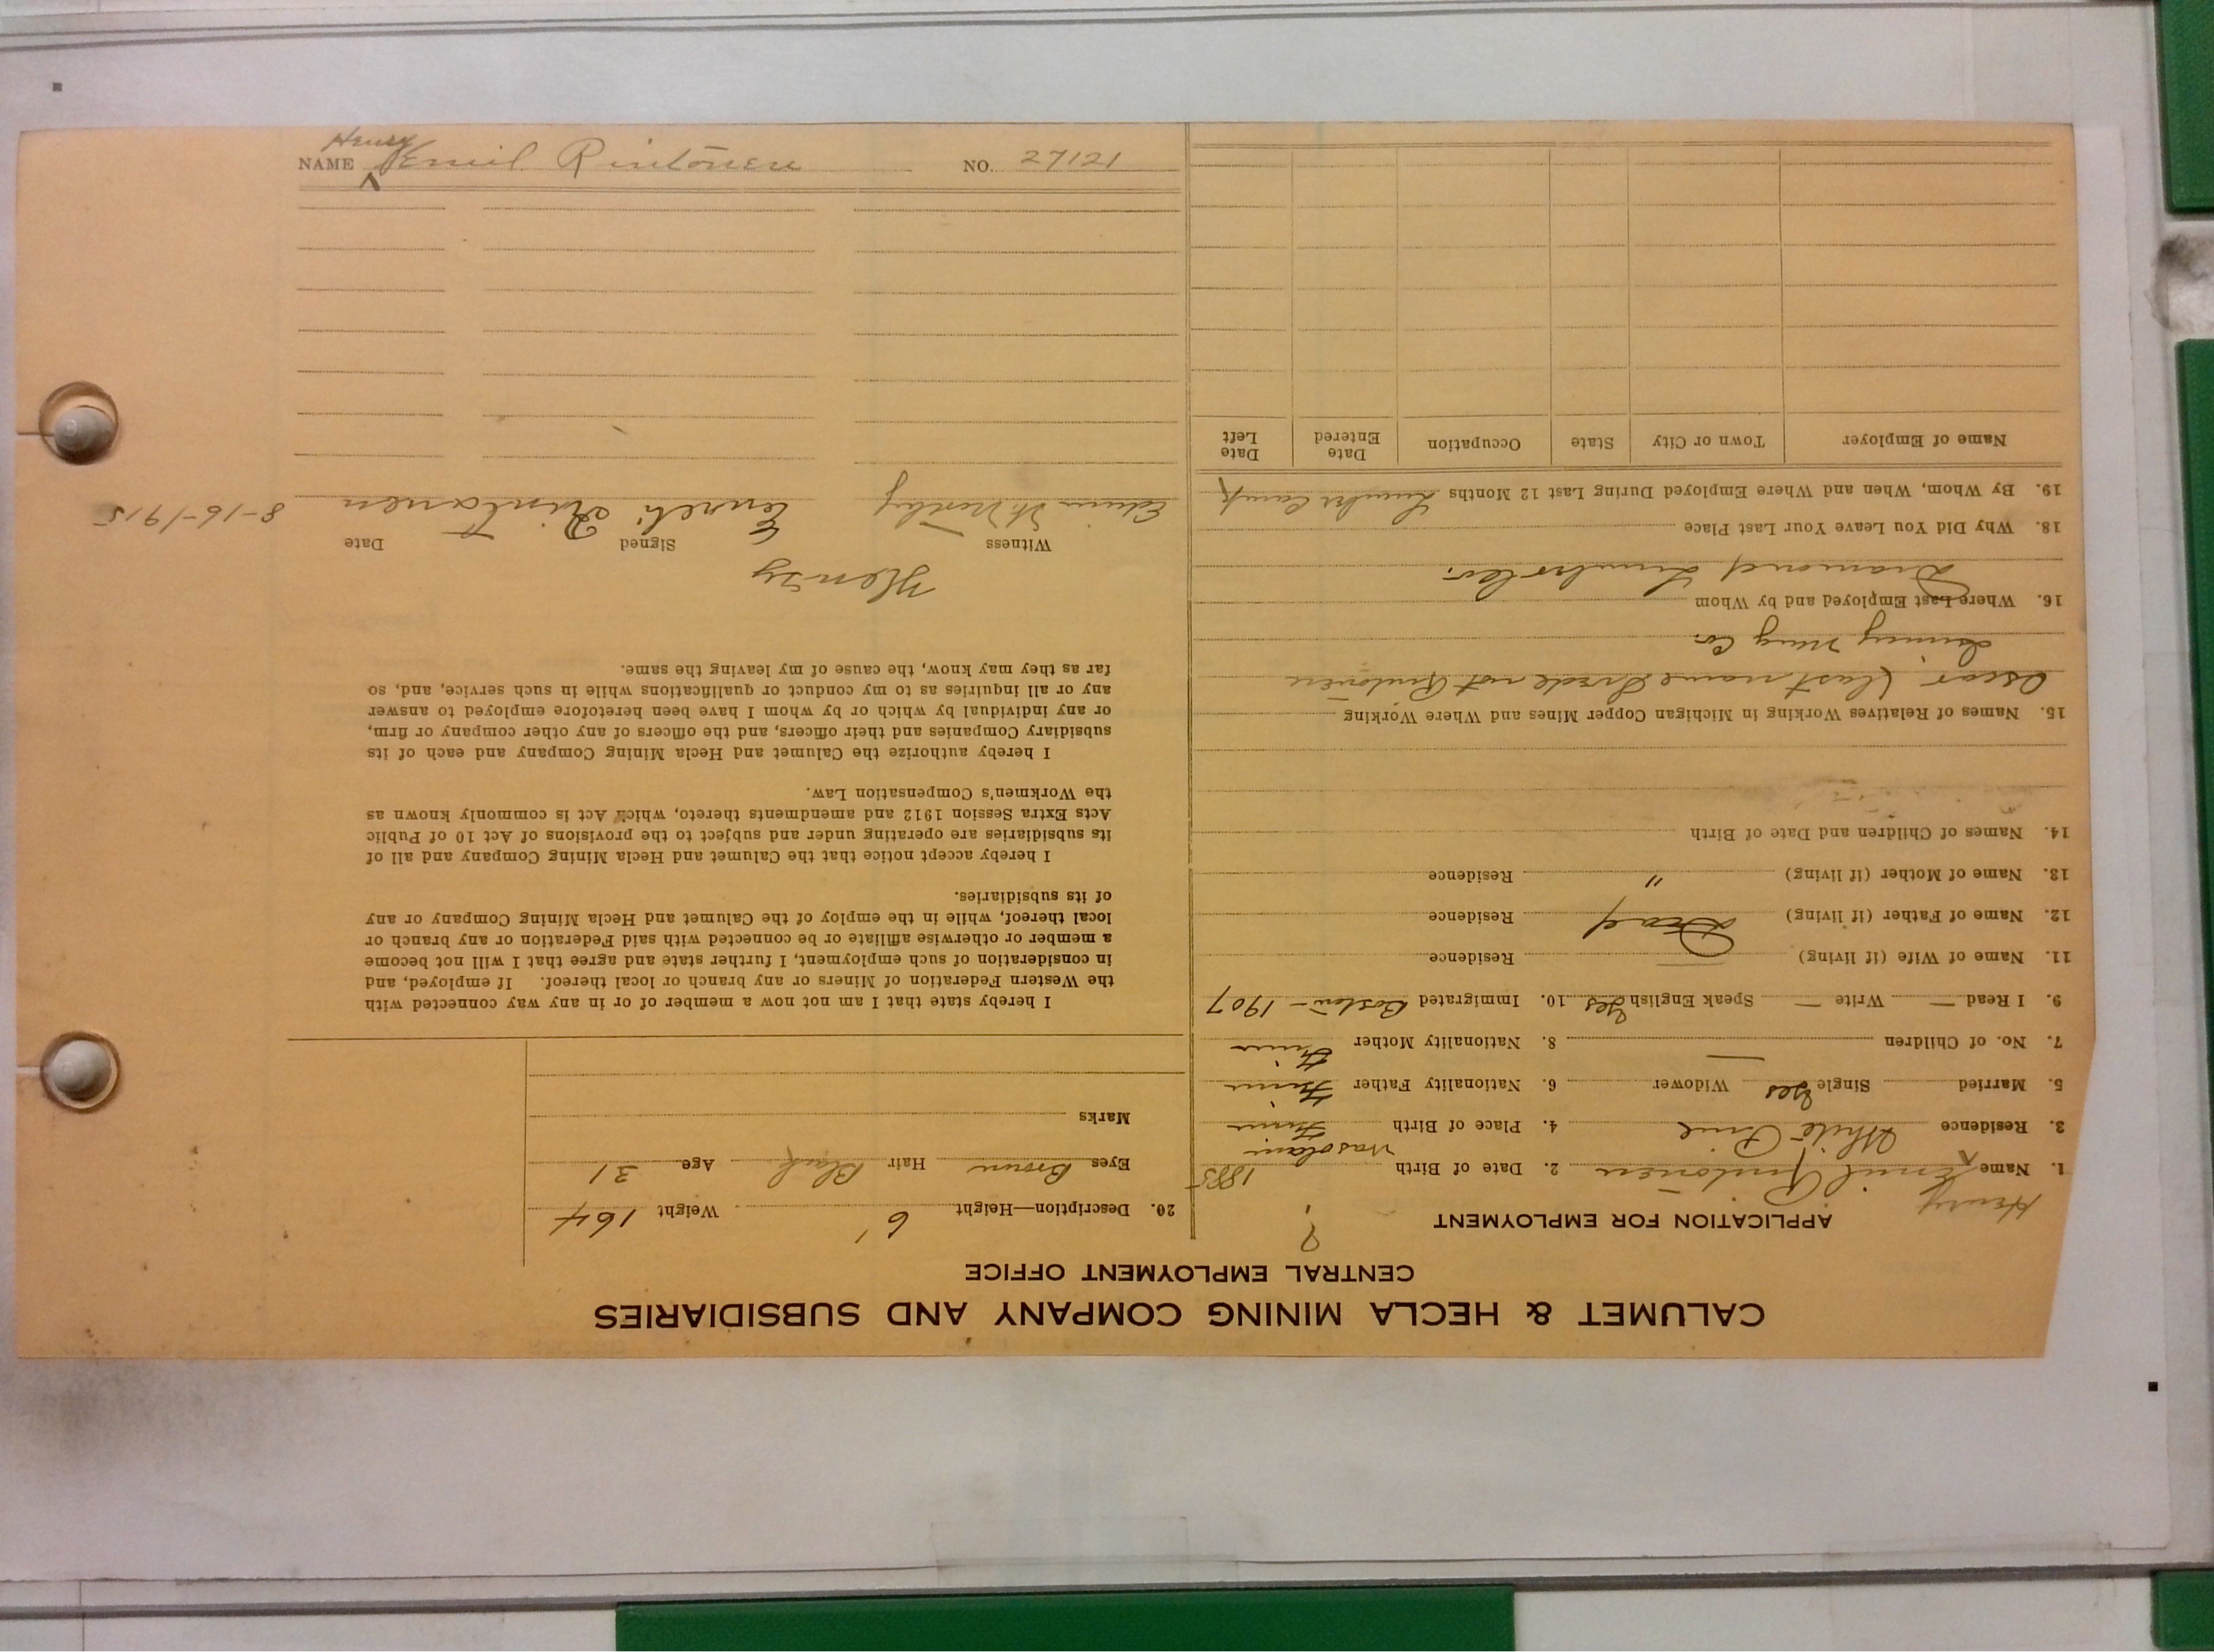 CALUMET & HECLA MINING COMPANY AND SUBSIDIARIES
CENTRAL EMPLOYMENT OFFICE
APPLICATION FOR EMPLOYMENT
?
Henry
1. Name Emil Rintonen 2. Date of Birth 1885
3. Residence White Pine 4. Place of Birth Finn
5. Married Single yes Widower 6. Nationality Father Finn
7. No. of Children — 8. Nationality Mother Finn
9. I Read — Write — Speak English yes 10. Immigrated Boston - 1907
11. Name of Wife (if living) — Residence
12. Name of Father (if living) Dead Residence
13. Name of Mother (if living) " Residence
14. Names of Children and Date of Birth
15. Names of Relatives Working in Michigan Copper Mines and Where Working
Oscar (last name Swede not Rintonen
Mng Co.
16. Where Last Employed and by Whom
Diamond Lumber Co.
18. Why Did You Leave Your Last Place
19. By Whom, When and Where Employed During Last 12 Months Lumber Camp
Name of Employer Town or City State Occupation Date Entered Date Left
20. Description—Height 6' Weight 164
Eyes Brown Hair Black Age 31
Marks
I hereby state that I am not now a member of or in any way connected with
the Western Federation of Miners or any branch or local thereof. If employed, and
in consideration of such employment, I further state and agree that I will not become
a member or otherwise affiliate or be connected with said Federation or any branch or
local thereof, while in the employ of the Calumet and Hecla Mining Company or any
of its subsidiaries.
I hereby accept notice that the Calumet and Hecla Mining Company and all of
its subsidiaries are operating under and subject to the provisions of Act 10 of Public
Acts Extra Session 1912 and amendments thereto, which Act is commonly known as
the Workmen's Compensation Law.
I hereby authorize the Calumet and Hecla Mining Company and each of its
subsidiary Companies and their officers, and the officers of any other company or firm,
or any individual by which or by whom I have been heretofore employed to answer
any or all inquiries as to my conduct or qualifications while in such service, and, so
far as they may know, the cause of my leaving the same.
Henry
Witness Signed Date
Edwin Rintanen 8-16-1915
Henry
NAME Emil Rintonen NO. 27121